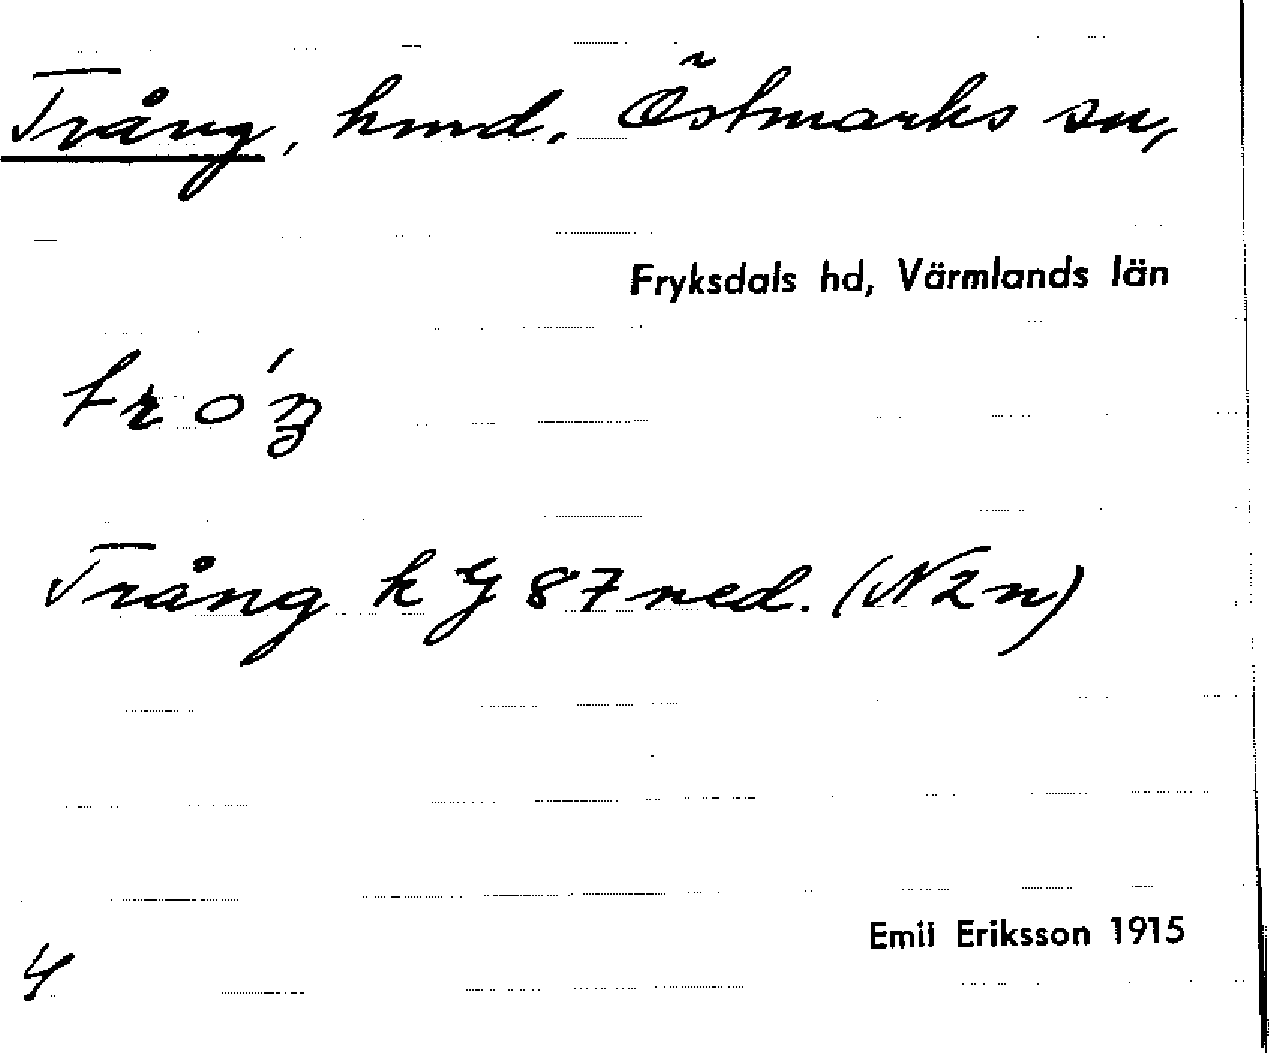 Trång, hmd. Östmarks sn,
Fryksdals hd, Värmlands län
Trång k G 87 ned. (N2n)
Emil Eriksson 1915
4